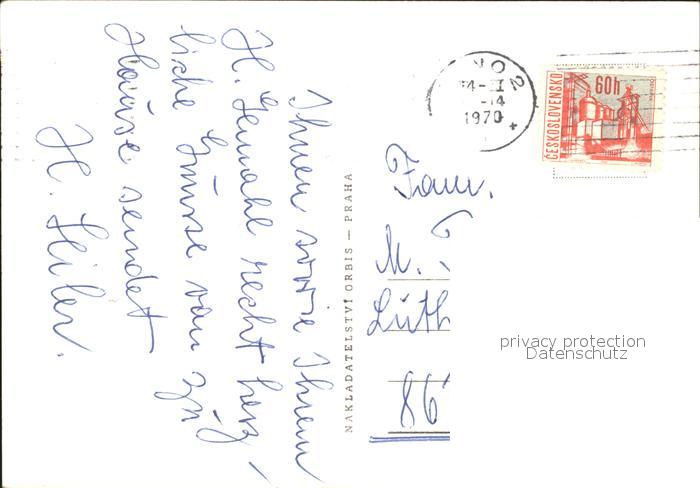 Ihnen sowie Ihrem
H. Gemahl recht herz-
liche Grüsse von zu
Hause sendet
H. Hiler.
NAKLADATELSTVÍ ORBIS — PRAHA
NO 2
-14
1970
ČESKOSLOVENSKO
60h
Fam.
M.
Lüth
86
privacy protection
Datenschutz